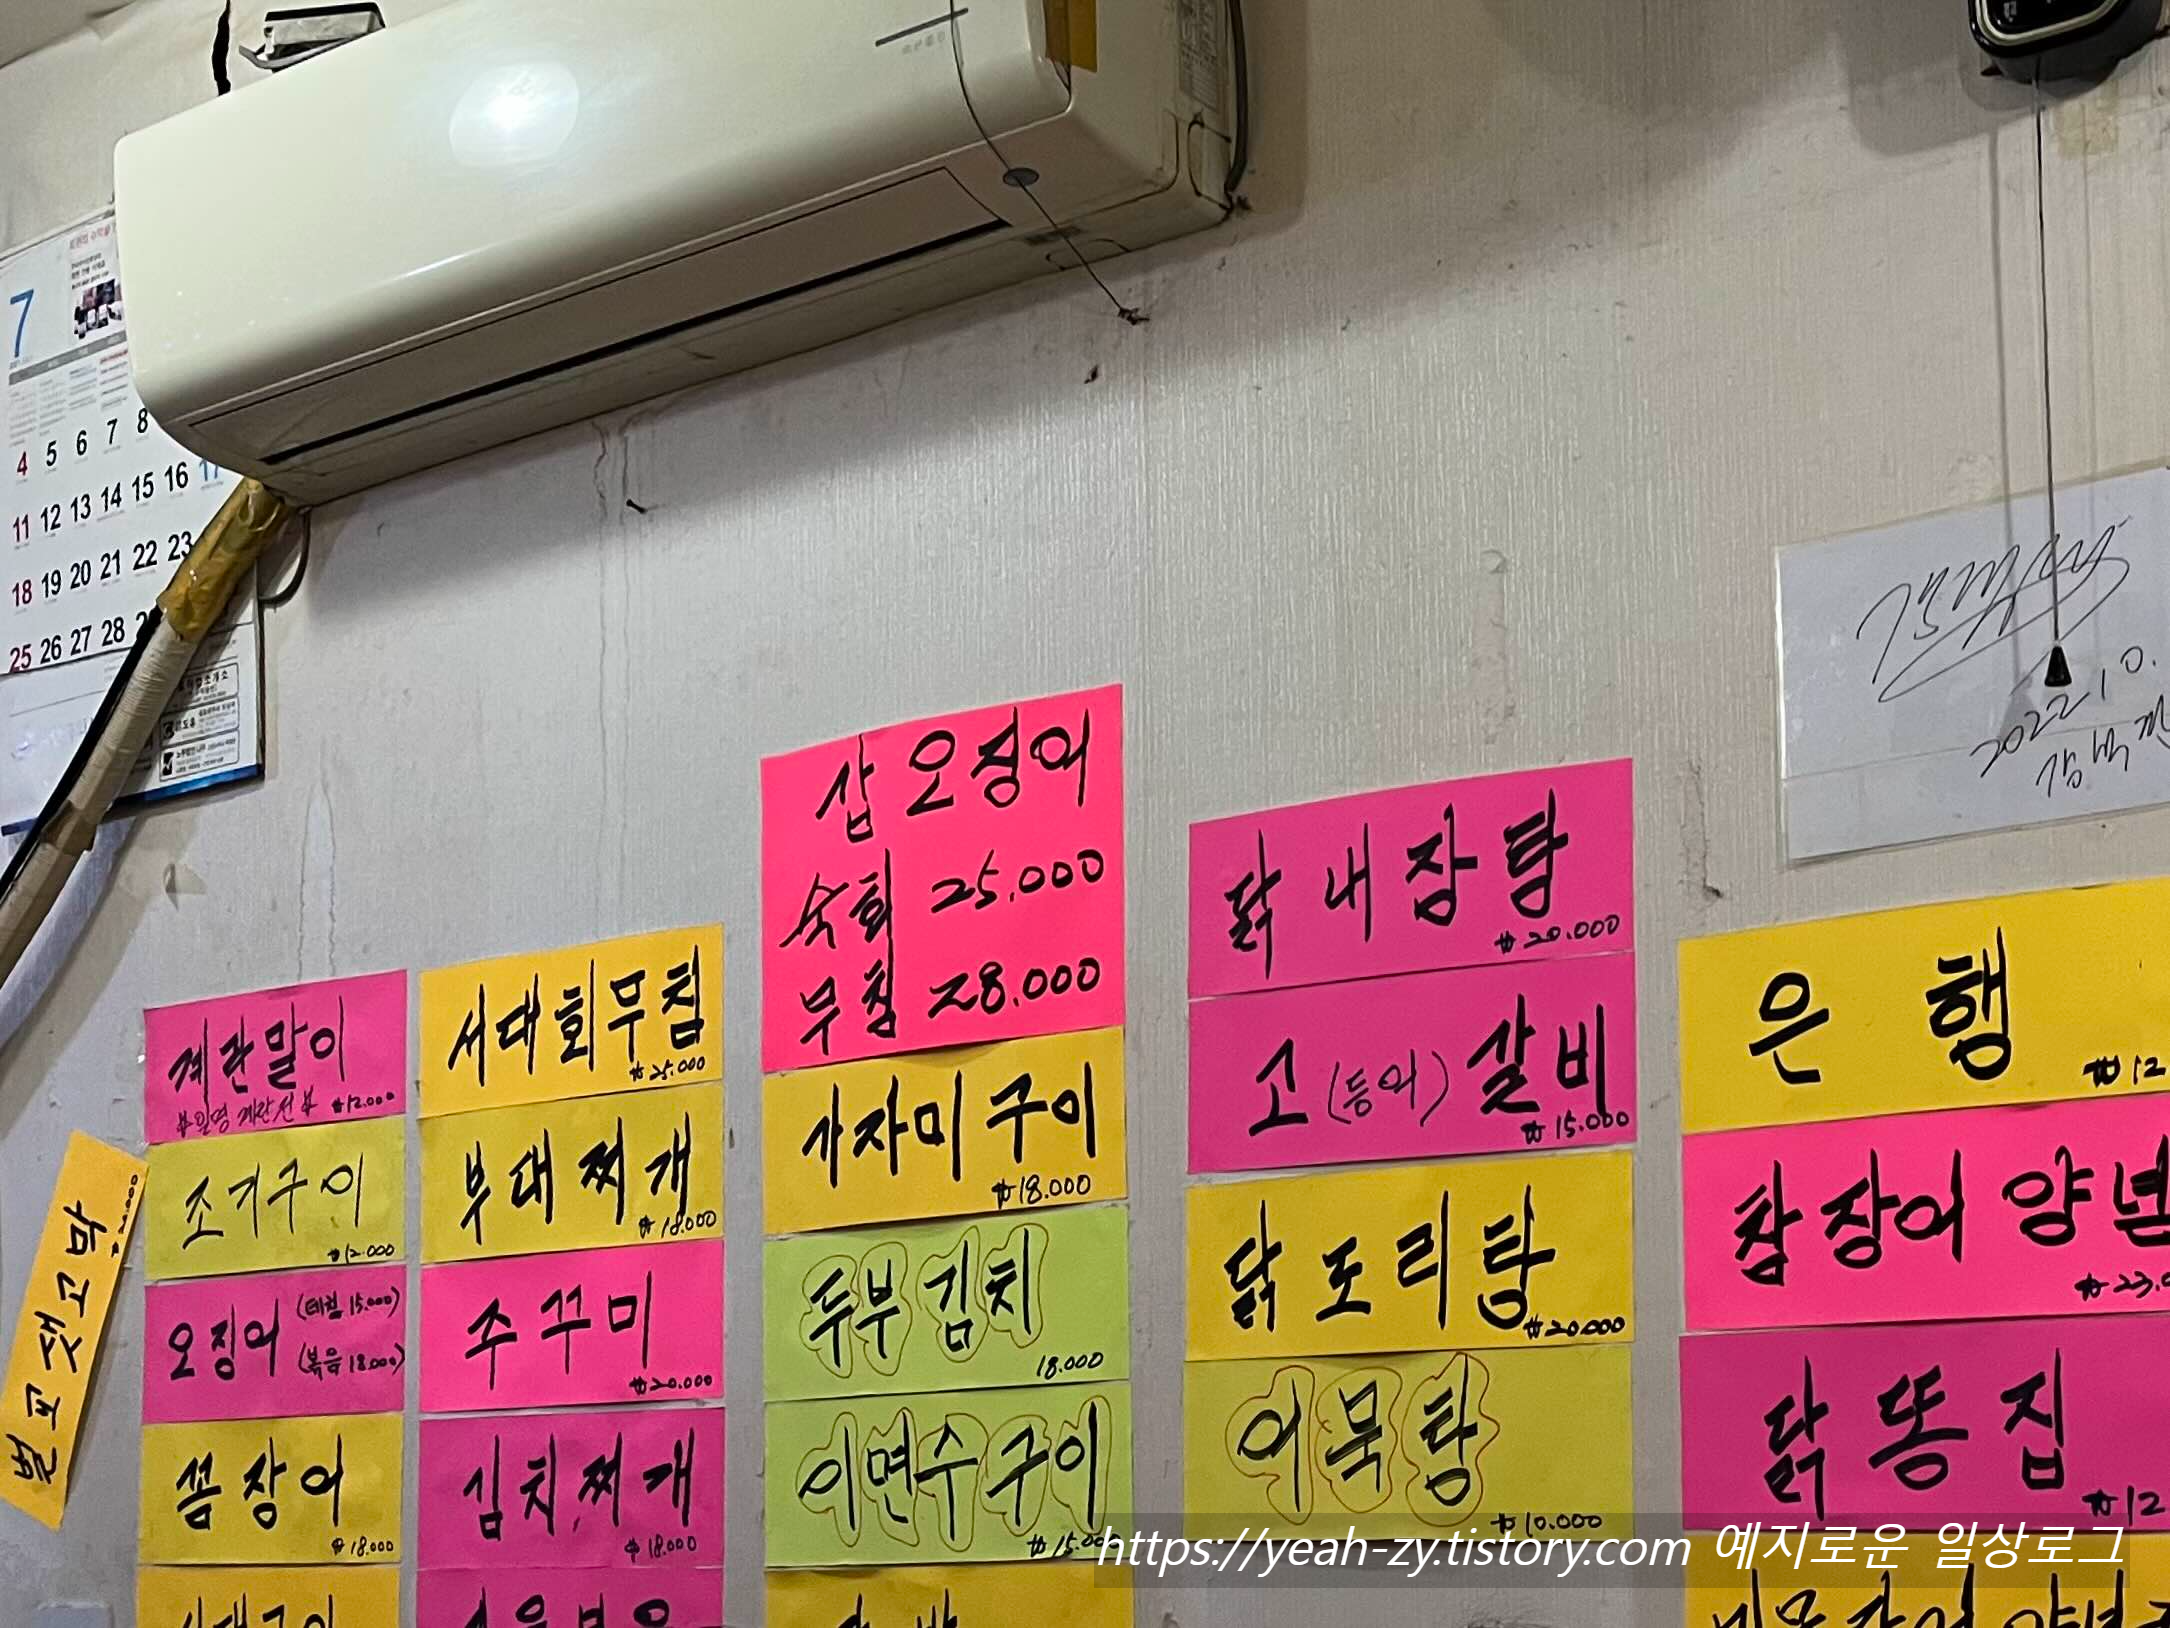 7
4 5 6 7 8
11 12 13 14 15 16 17
18 19 20 21 22 23
25 26 27 28
2022.10.
벌교고잿
계란말이
일명 계란전 ₩12.000
조기구이
₩12.000
오징어 (데침 15.000)
(볶음 18.000)
꼼장어
₩18.000
서대회무침
₩25.000
부대찌개
₩18.000
쭈꾸미
₩20.000
김치찌개
₩18.000
삽오징어
숙회 25.000
무침 28.000
가자미구이
₩18.000
두부김치
18.000
이면수구이
₩15.000
닭내장탕
₩20.000
고(등어)갈비
₩15.000
닭도리탕
₩20.000
어묵탕
₩10.000
은행
₩12
참장어양념
₩23.
닭똥집
₩12
https://yeah-zy.tistory.com 예지로운 일상로그